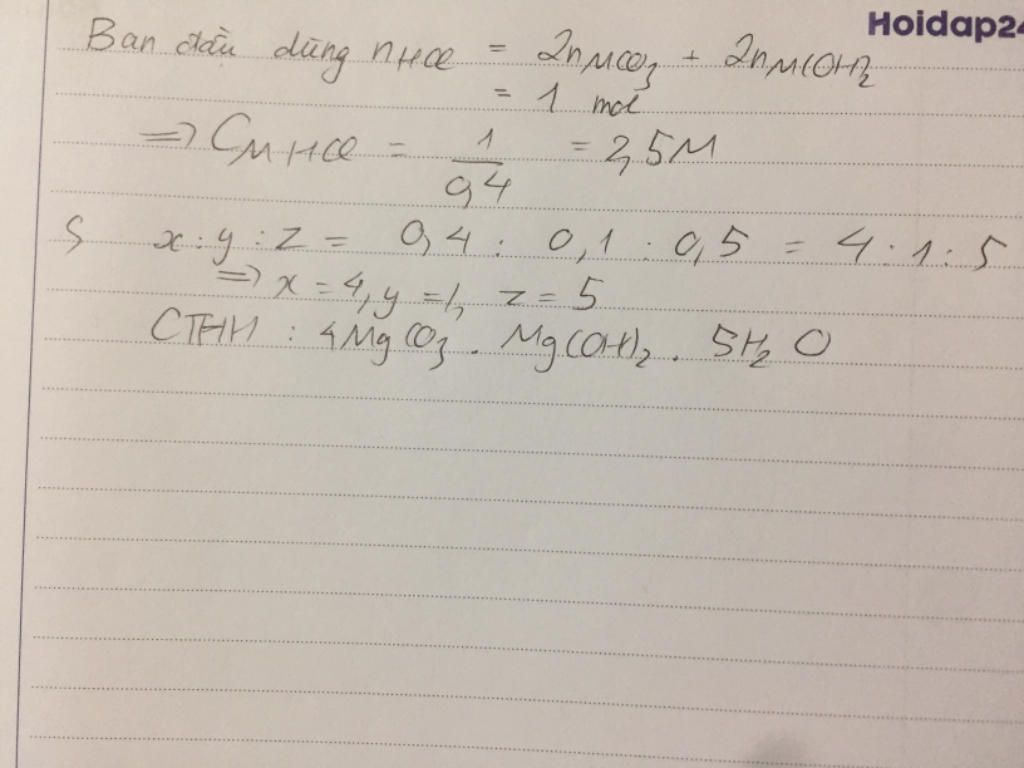 Hoidap24
Ban đầu dùng nHCl = 2nMCO3 + 2nM(OH)2
= 1 mol
=> CM HCl = 1/0,4 = 2,5M
S x : y : z = 0,4 : 0,1 : 0,5 = 4 : 1 : 5
=> x = 4, y = 1, z = 5
CTHH : 4MgCO3 . Mg(OH)2 . 5H2O